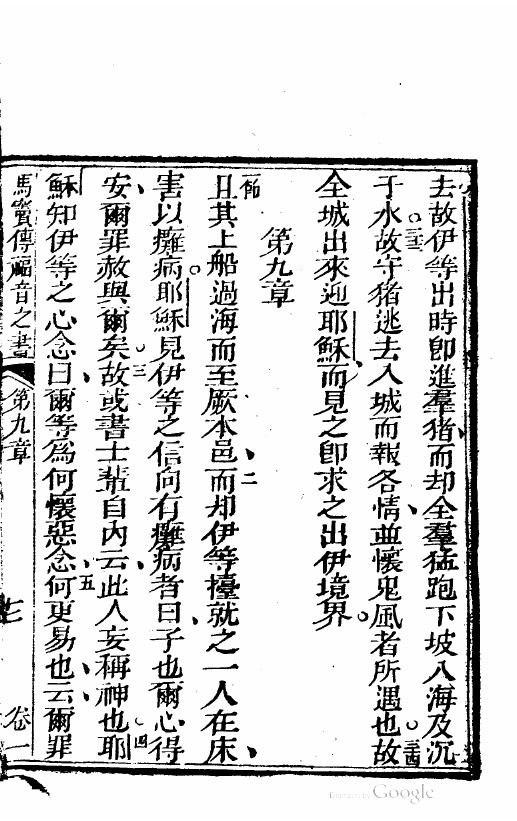 去故伊等出時卽進羣猪而却全羣猛跑下坡入海及沉
于水故守猪逃去入城而報各情並懷鬼風者所遇也故
全城出來迎耶穌而見之卽求之出伊境界
第九章
且其上船過海而至厥本邑而却伊等擡就之一人在床
害以癱病耶穌見伊等之信向有癱病者曰子也爾心得
安爾罪赦與爾矣故或書士輩自內云此人妄稱神也耶
穌知伊等之心念曰爾等爲何懷惡念何更易也云爾罪
馬竇傳福音之書 第九章 卷一
Digitized by Google